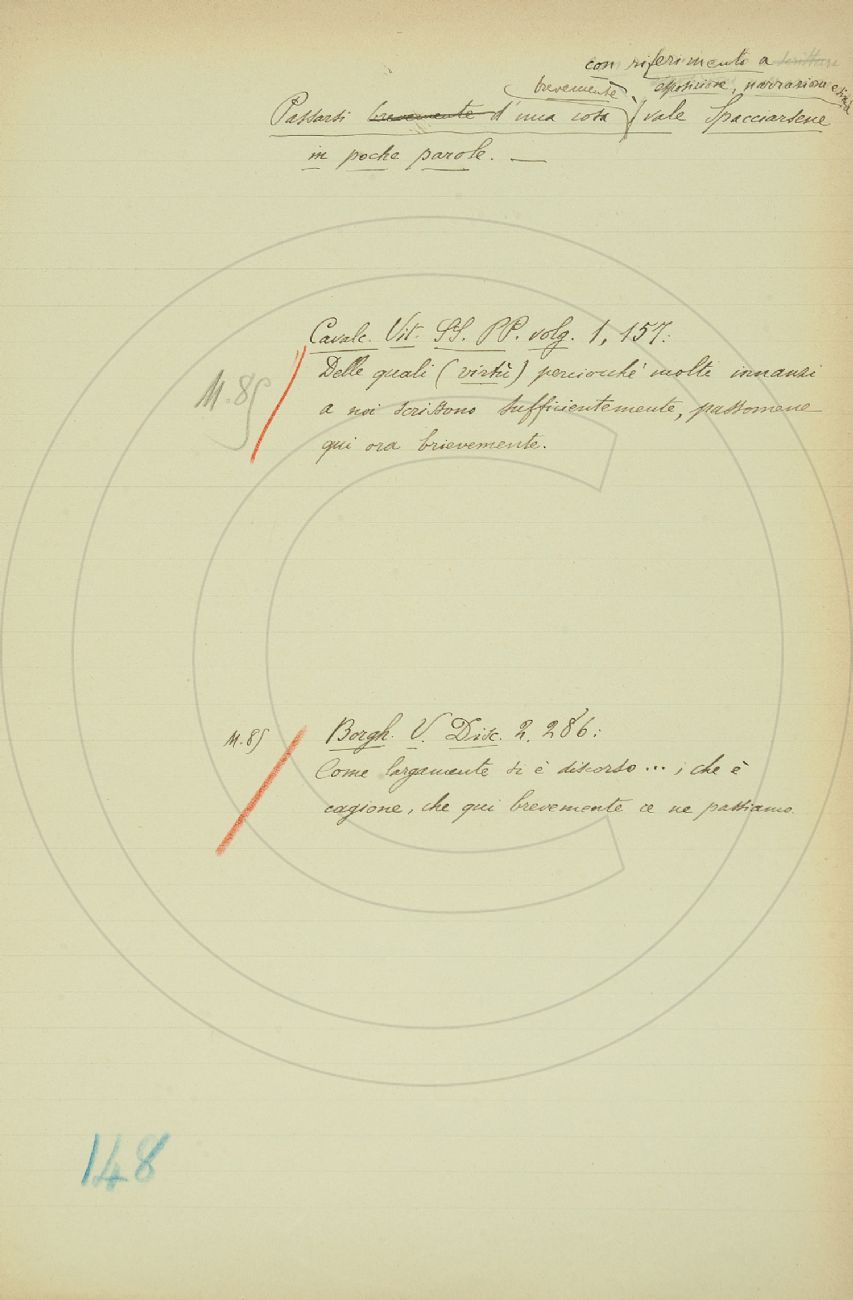 con riferimento a scritture
brevemente, esposizione, narrazione e simili
Passarsi brevemente d'una cosa vale Spacciarsene
in poche parole. —
Cavalc. Vit. SS. PP. volg. 1, 157:
M. 85
Delle quali (virtù) perciocchè molti innanzi
a noi scrissono sufficientemente, passomene
qui ora brievemente.
M. 85
Borgh. V. Disc. 2. 286:
Come largamente si è discorso ... ; che è
cagione, che qui brevemente ce ne passiamo.
148